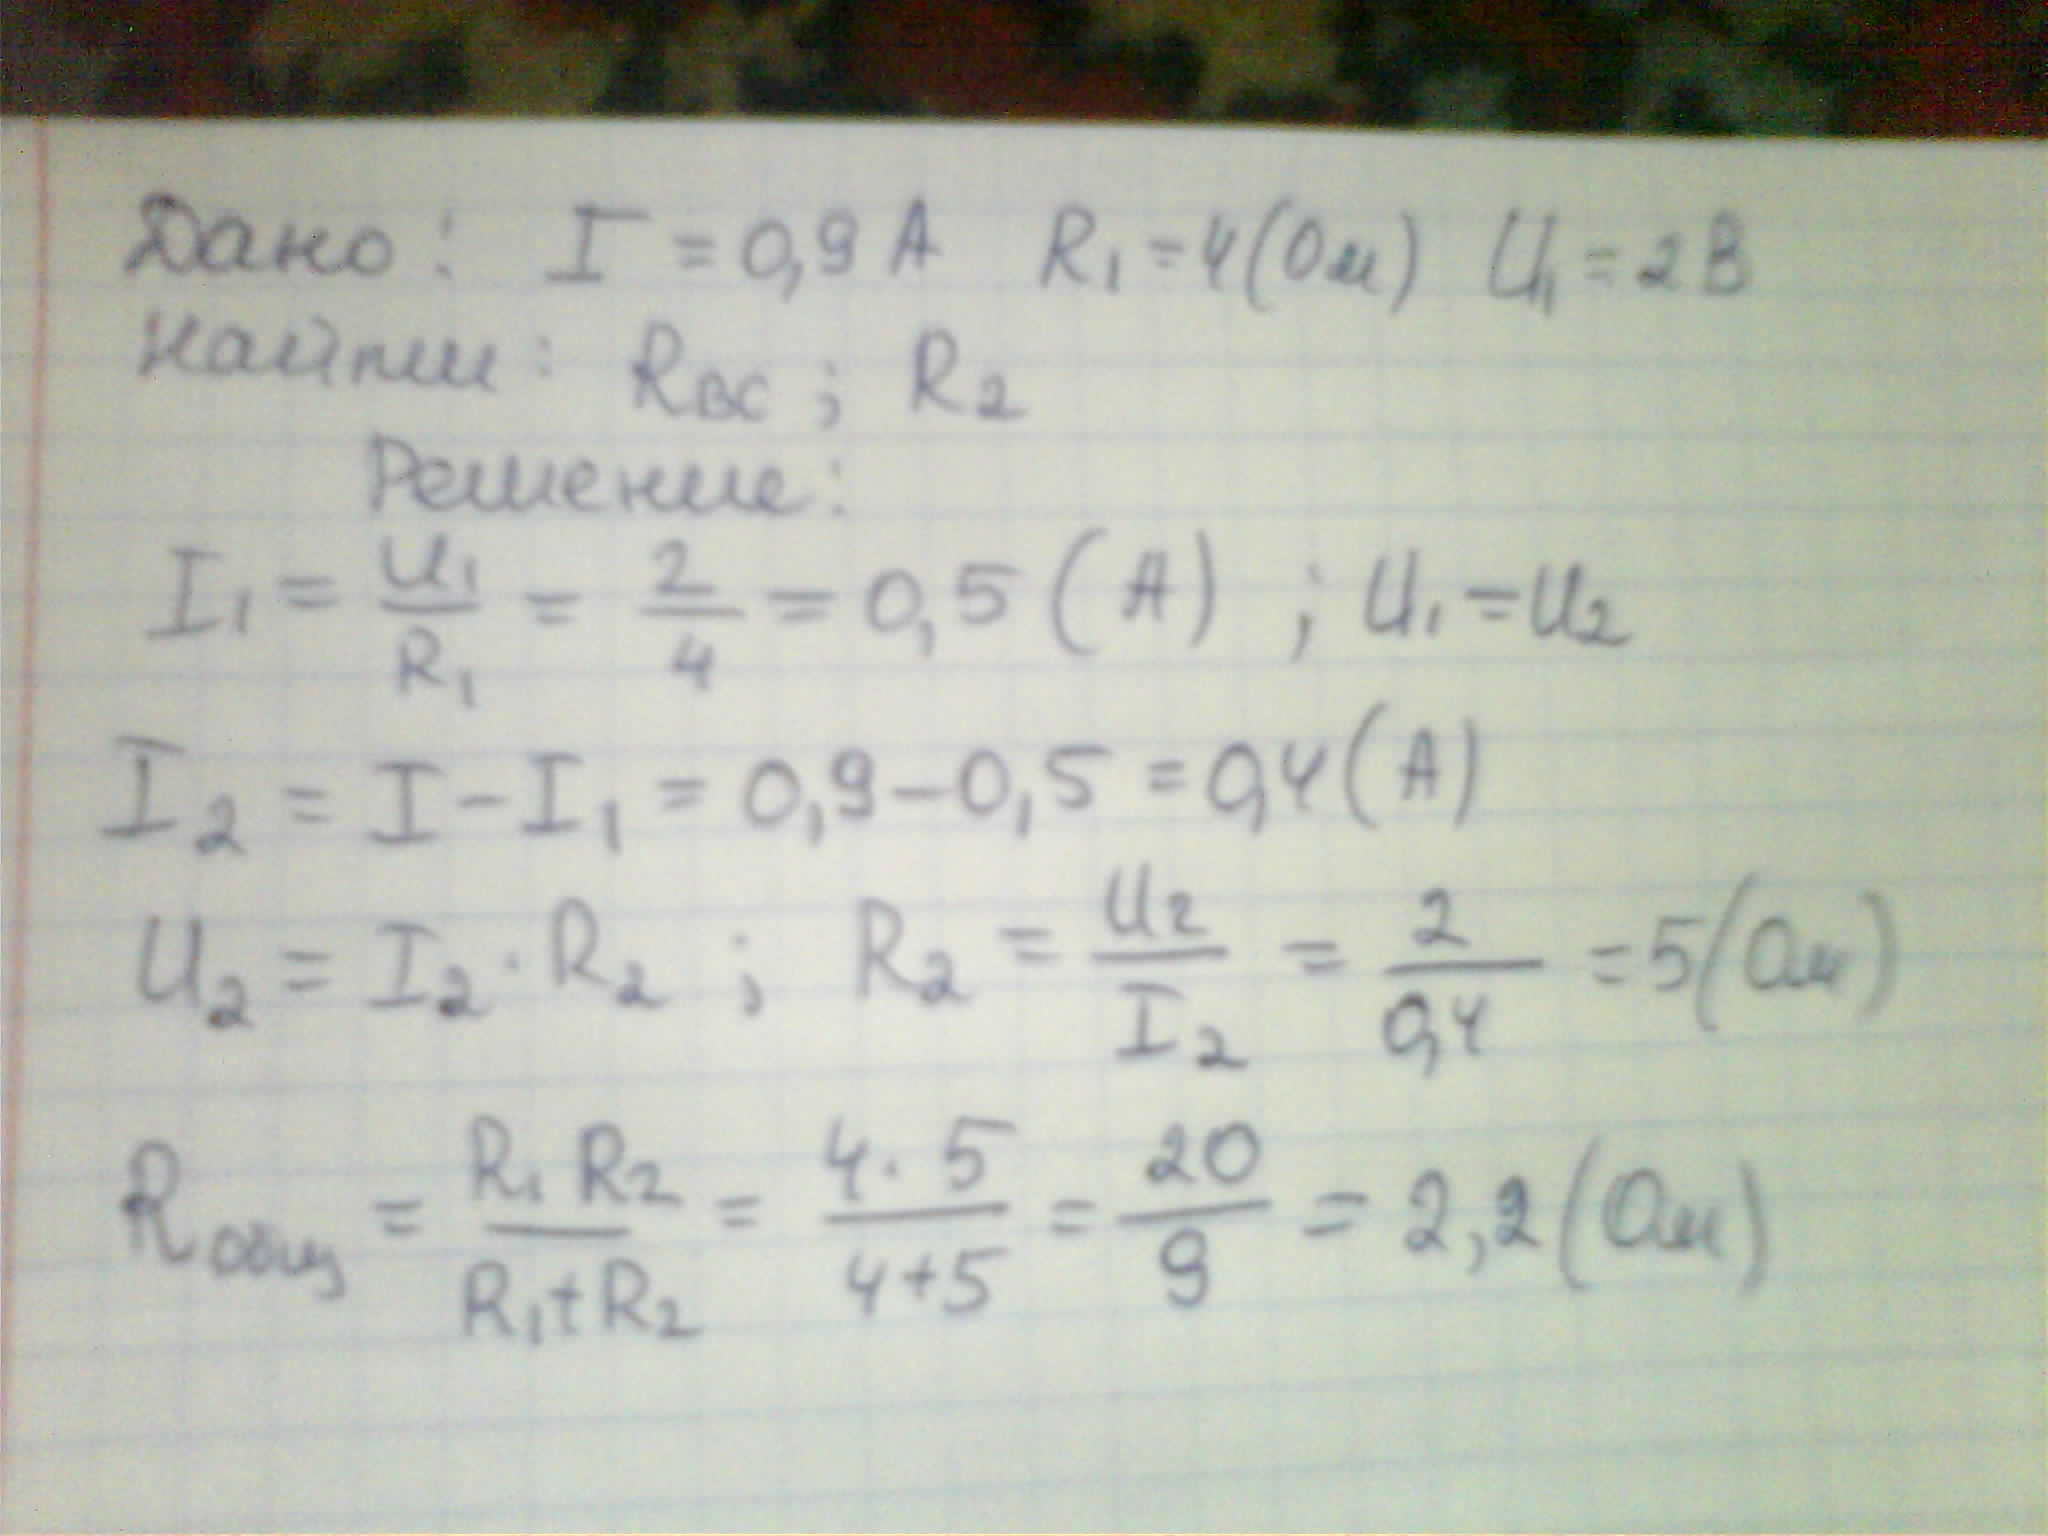 Дано: I = 0,9 А R₁ = 4 (Ом) U₁ = 2 В
Найти: Rвс ; R₂
Решение:
I₁ = U₁/R₁ = 2/4 = 0,5 (А) ; U₁ = U₂
I₂ = I - I₁ = 0,9 - 0,5 = 0,4 (А)
U₂ = I₂ · R₂ ; R₂ = U₂/I₂ = 2/0,4 = 5 (Ом)
Rобщ = R₁ R₂/R₁+R₂ = 4·5/4+5 = 20/9 = 2,2 (Ом)